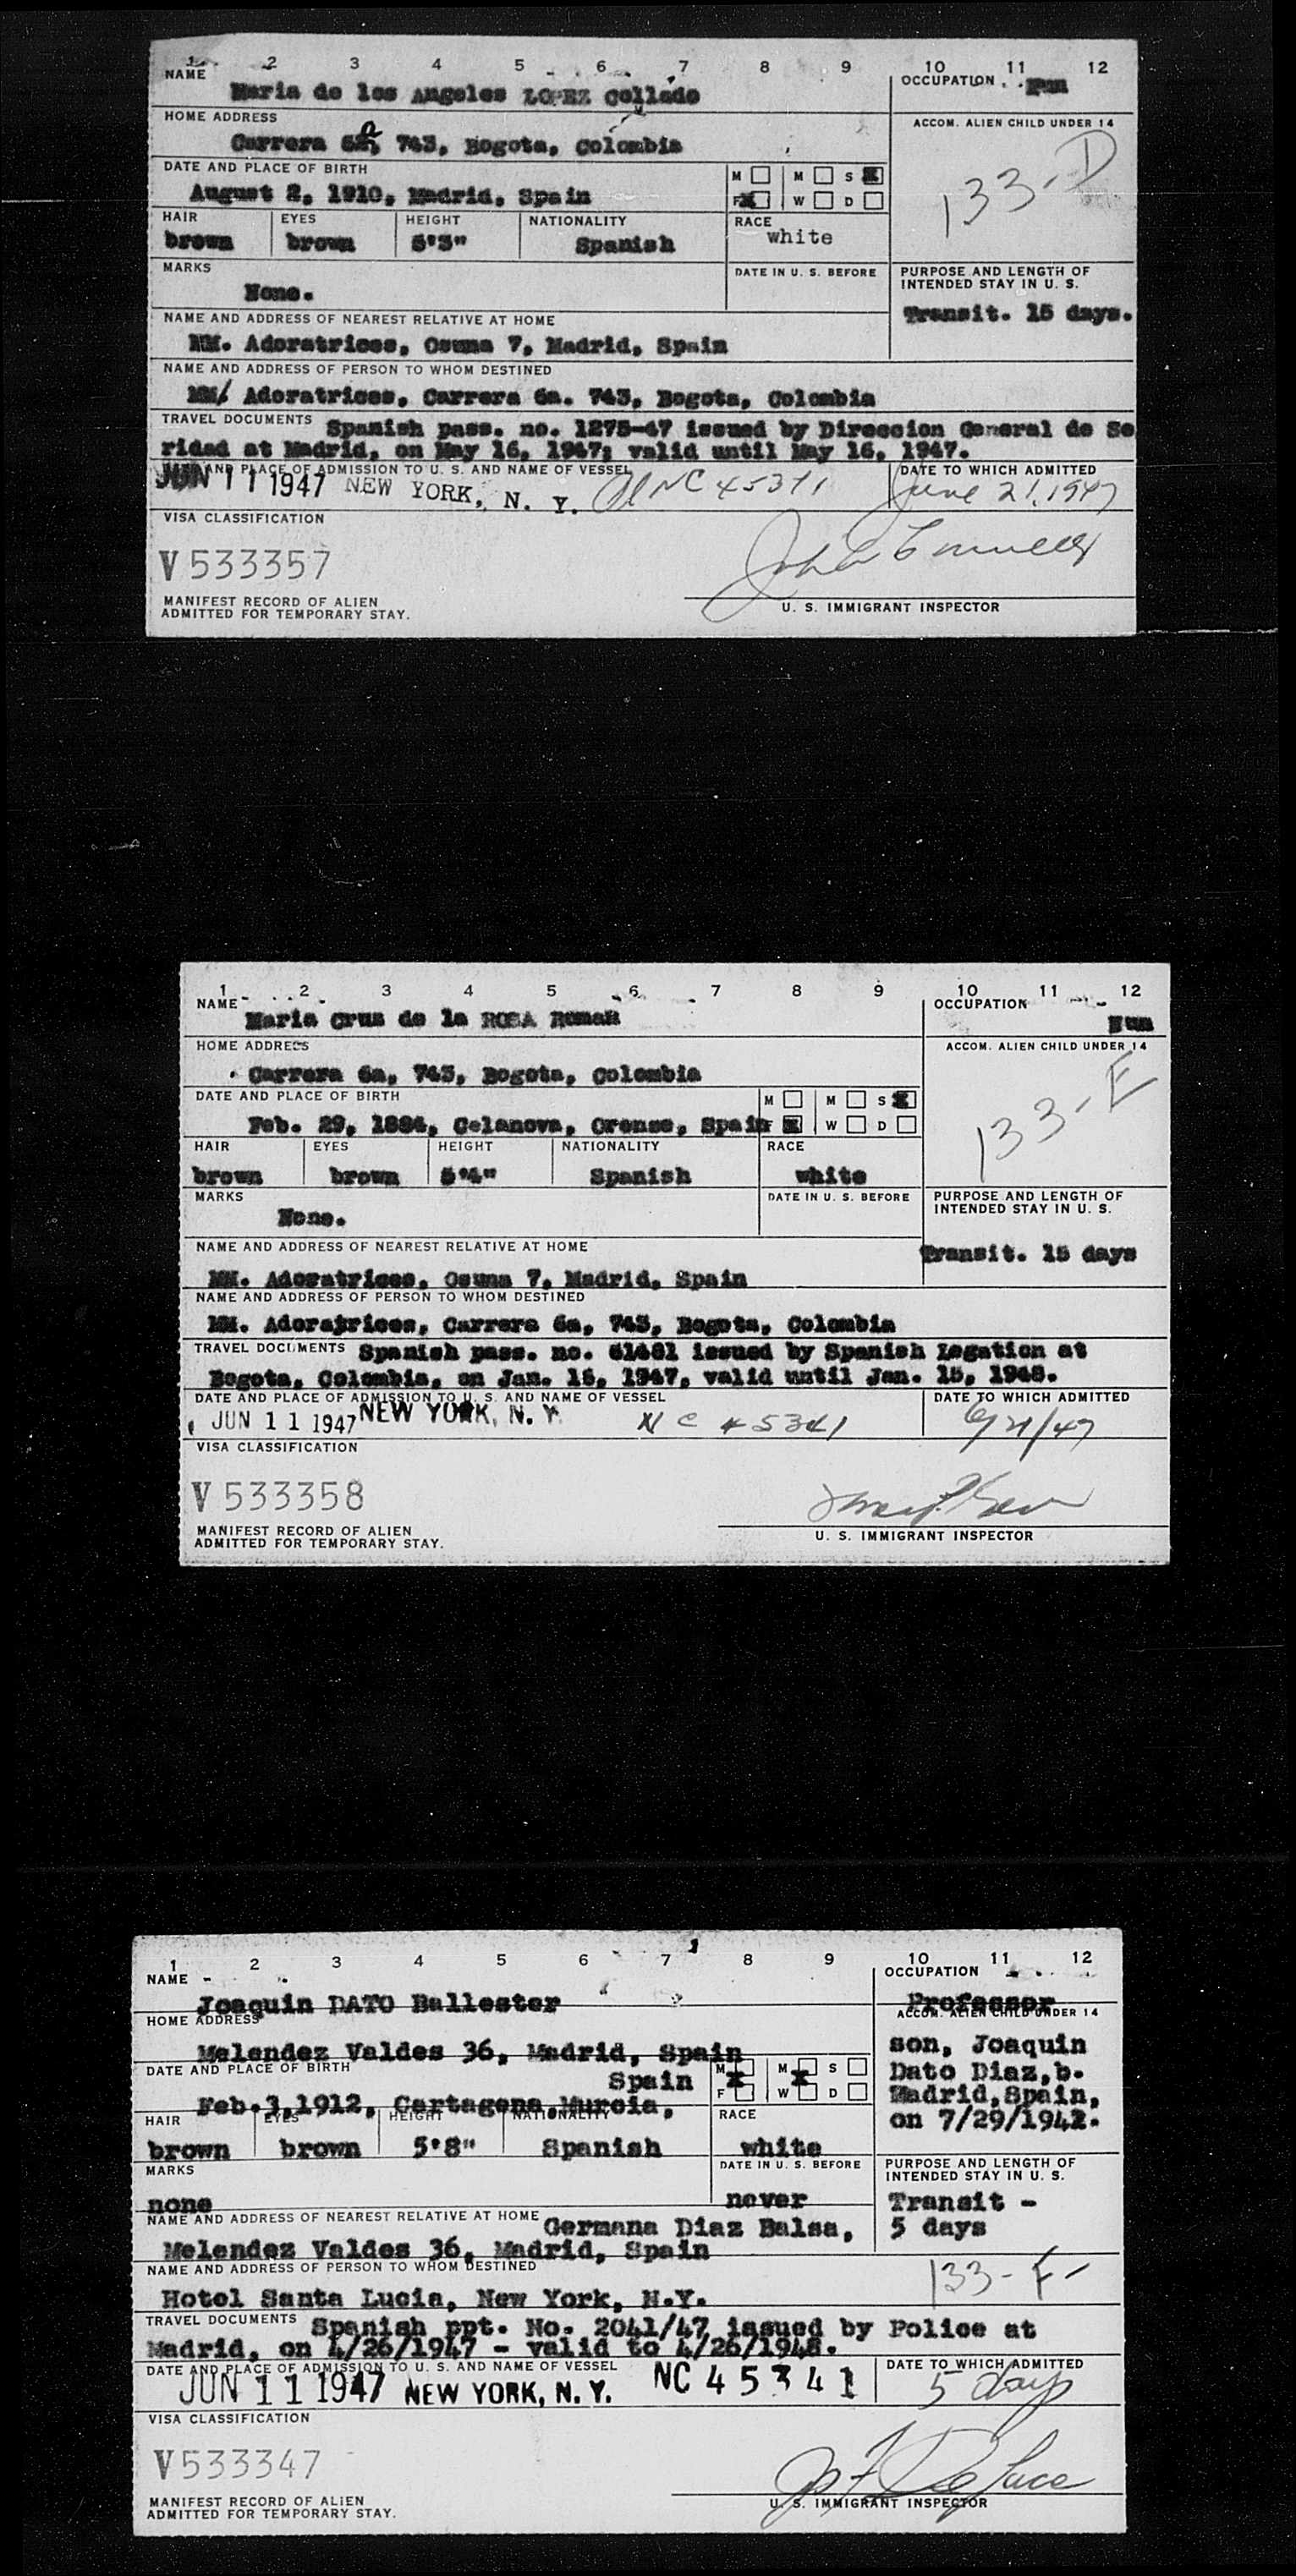 1 2 3 4 5 6 7 8 9 10 11 12
NAME OCCUPATION
Maria de los Angeles LOPEZ Collado Nun
HOME ADDRESS ACCOM. ALIEN CHILD UNDER 14
Carrera 6a, 743, Bogota, Colombia 133-D
DATE AND PLACE OF BIRTH M M S
August 2, 1910, Madrid, Spain F W D
HAIR EYES HEIGHT NATIONALITY RACE
brown brown 5'3" Spanish white
MARKS DATE IN U. S. BEFORE PURPOSE AND LENGTH OF
INTENDED STAY IN U. S.
None.
Transit. 15 days.
NAME AND ADDRESS OF NEAREST RELATIVE AT HOME
MM. Adoratrices, Osuna 7, Madrid, Spain
NAME AND ADDRESS OF PERSON TO WHOM DESTINED
MM/ Adoratrices, Carrera 6a. 743, Bogota, Colombia
TRAVEL DOCUMENTS Spanish pass. no. 1275-47 issued by Direccion General de Se
ridad at Madrid, on May 16, 1947; valid until May 16, 1947.
AND PLACE OF ADMISSION TO U. S. AND NAME OF VESSEL DATE TO WHICH ADMITTED
JUN 11 1947 NEW YORK, N. Y. NC 45341 June 21, 1947
VISA CLASSIFICATION
V 533357
MANIFEST RECORD OF ALIEN
ADMITTED FOR TEMPORARY STAY. U. S. IMMIGRANT INSPECTOR
1 2 3 4 5 6 7 8 9 10 11 12
NAME OCCUPATION
Maria Cruz de la ROSA Roman Nun
HOME ADDRESS ACCOM. ALIEN CHILD UNDER 14
Carrera 6a, 743, Bogota, Colombia 133-E
DATE AND PLACE OF BIRTH M M S
Feb. 29, 1884, Celanova, Orense, Spain F W D
HAIR EYES HEIGHT NATIONALITY RACE
brown brown 5'4" Spanish white
MARKS DATE IN U. S. BEFORE PURPOSE AND LENGTH OF
INTENDED STAY IN U. S.
None.
NAME AND ADDRESS OF NEAREST RELATIVE AT HOME Transit. 15 days
MM. Adoratrices, Osuna 7, Madrid, Spain
NAME AND ADDRESS OF PERSON TO WHOM DESTINED
MM. Adoratrices, Carrera 6a, 743, Bogota, Colombia
TRAVEL DOCUMENTS Spanish pass. no. 61481 issued by Spanish Legation at
Bogota, Colombia, on Jan. 16, 1947, valid until Jan. 15, 1948.
DATE AND PLACE OF ADMISSION TO U. S. AND NAME OF VESSEL DATE TO WHICH ADMITTED
JUN 11 1947 NEW YORK, N. Y. NC 45341 6/21/47
VISA CLASSIFICATION
V 533358
MANIFEST RECORD OF ALIEN
ADMITTED FOR TEMPORARY STAY. U. S. IMMIGRANT INSPECTOR
1 2 3 4 5 6 7 8 9 10 11 12
NAME OCCUPATION
Joaquin DATO Ballester Professor
HOME ADDRESS ACCOM. ALIEN CHILD UNDER 14
Melendez Valdes 36, Madrid, Spain son, Joaquin
DATE AND PLACE OF BIRTH M M S Dato Diaz,b.
Spain F W D Madrid,Spain,
Feb.3,1912, Cartagena,Murcia, on 7/29/1942.
HAIR EYES HEIGHT NATIONALITY RACE
brown brown 5'8" Spanish white
MARKS DATE IN U. S. BEFORE PURPOSE AND LENGTH OF
INTENDED STAY IN U. S.
none never Transit -
NAME AND ADDRESS OF NEAREST RELATIVE AT HOME Germana Diaz Balsa, 5 days
Melendez Valdes 36, Madrid, Spain
NAME AND ADDRESS OF PERSON TO WHOM DESTINED 133-F-
Hotel Santa Lucia, New York, N.Y.
TRAVEL DOCUMENTS Spanish ppt. No. 2041/47 issued by Police at
Madrid, on 4/26/1947 - valid to 4/26/1948.
DATE AND PLACE OF ADMISSION TO U. S. AND NAME OF VESSEL DATE TO WHICH ADMITTED
JUN 11 1947 NEW YORK, N. Y. NC 45341 5 days
VISA CLASSIFICATION
V533347
MANIFEST RECORD OF ALIEN
ADMITTED FOR TEMPORARY STAY. U. S. IMMIGRANT INSPECTOR